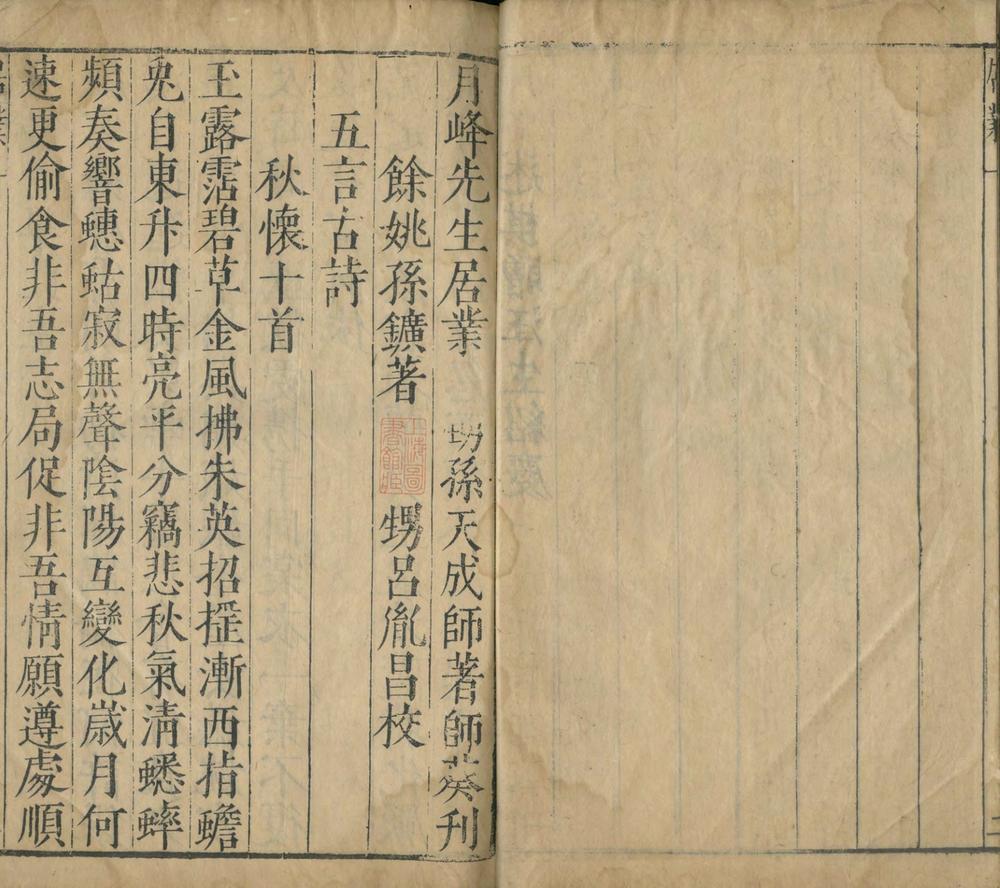 月峰先生居業 甥孫天成師著師葵刊
餘姚孫鑛著 甥呂胤昌校
上海圖書館藏
五言古詩
秋懷十首
玉露霑碧草金風拂朱英招搖漸西指蟾
兔自東升四時亮平分竊悲秋氣清蟋蟀
頻奏響蟪蛄寂無聲陰陽互變化歲月何
速更偷食非吾志局促非吾情願遵處順